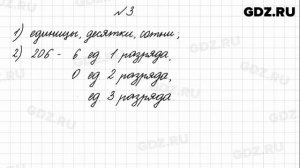 GDZ.RU
№3
1) единицы, десятки, сотни;
2) 206 - 6 ед 1 разряда,
0 ед 2 разряда,
ед 3 разряда.